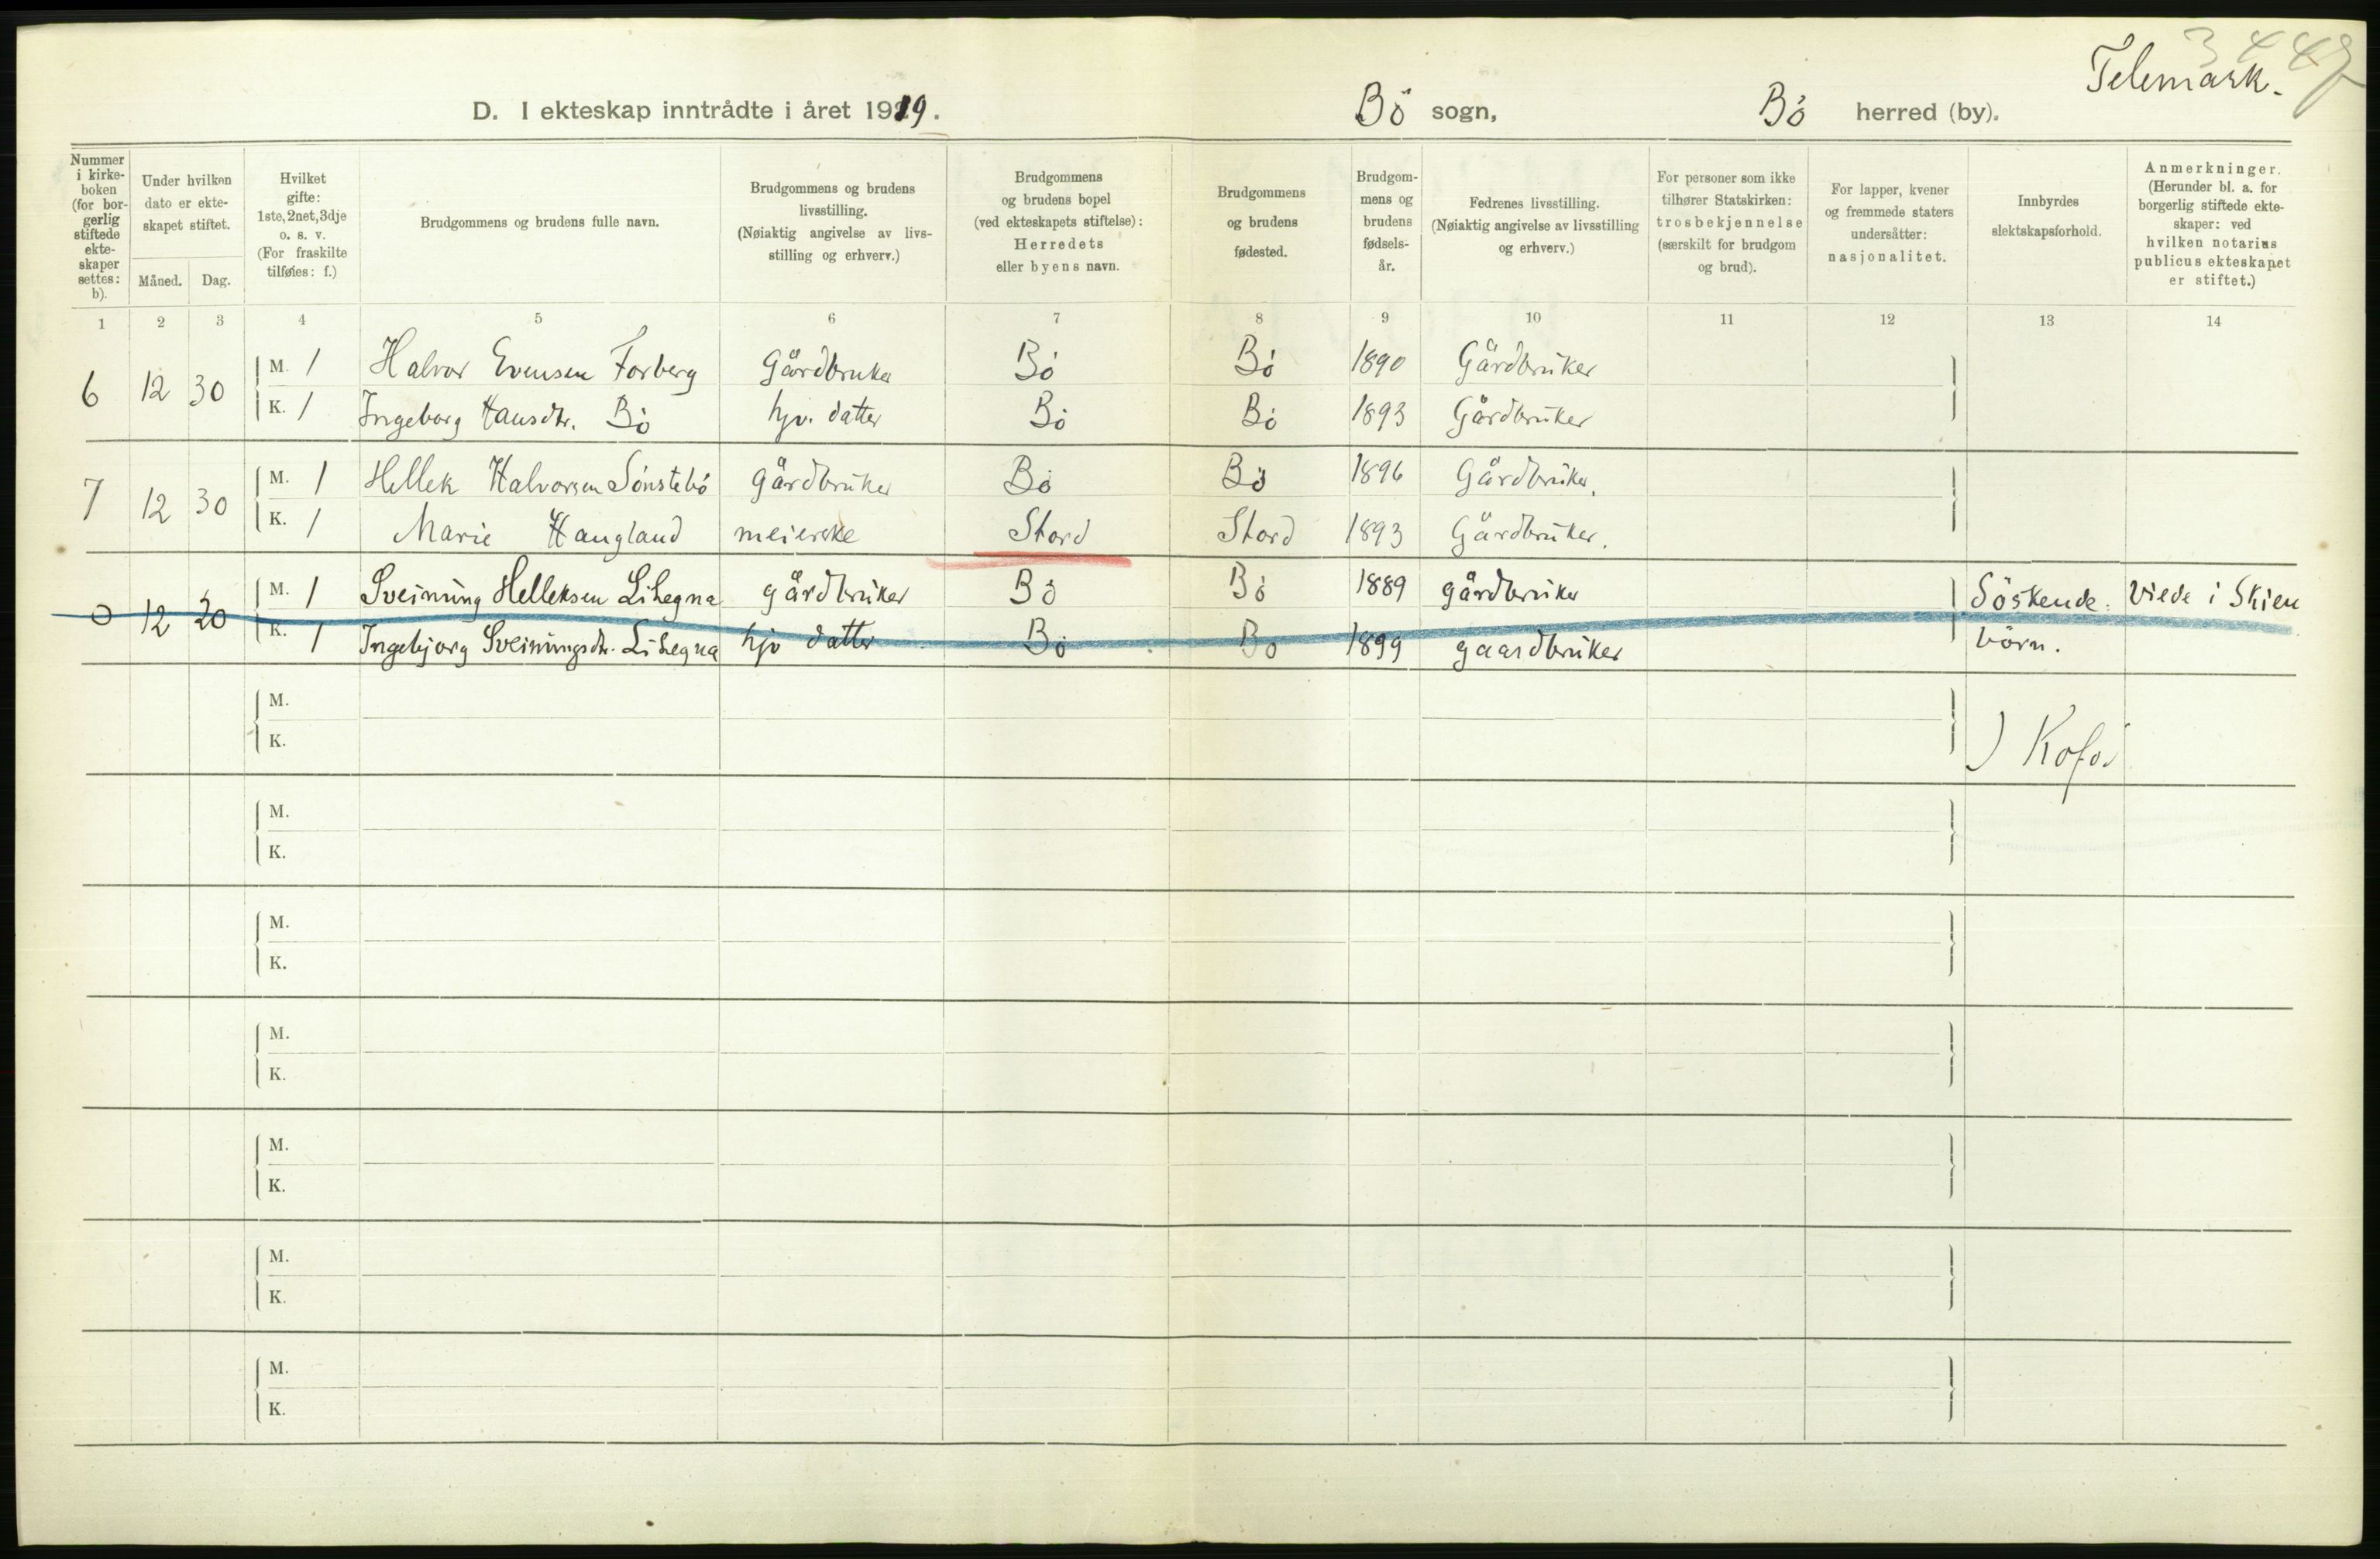 3447
Telemark.
D. I ekteskap inntrådte i året 1919. Bö sogn, Bö herred (by).
Nummer i kirke- boken (for bor- gerlig stiftede ekte- skaper settes: b).
Under hvilken dato er ekte- skapet stiftet.
Måned. Dag.
Hvilket gifte: 1ste, 2net, 3dje o. s. v. (For fraskilte tilføies: f.)
Brudgommens og brudens fulle navn.
Brudgommens og brudens livsstilling. (Nøiaktig angivelse av livs- stilling og erhverv.)
Brudgommens og brudens bopel (ved ekteskapets stiftelse): Herredets eller byens navn.
Brudgommens og brudens fødested.
Brudgom- mens og brudens fødsels- år.
Fedrenes livsstilling. (Nøiaktig angivelse av livsstilling og erhverv.)
For personer som ikke tilhører Statskirken: trosbekjennelse (særskilt for brudgom og brud).
For lapper, kvener og fremmede staters undersåtter: nasjonalitet.
Innbyrdes slektskapsforhold.
Anmerkninger. (Herunder bl. a. for borgerlig stiftede ekte- skaper: ved hvilken notarius publicus ekteskapet er stiftet.)
1 2 3 4 5 6 7 8 9 10 11 12 13 14
6 12 30 M. 1 Halvor Evensen Forberg Gårdbruker Bö Bö 1890 Gårdbruker
K. 1 Ingeborg Hansdtr. Bö hjv. datter Bö Bö 1893 Gårdbruker
7 12 30 M. 1 Hellek Halvorsen Sönstebö gårdbruker Bö Bö 1896 Gårdbruker.
K. 1 Marie Haugland meierske Stord Stord 1893 Gårdbruker.
0 12 20 M. 1 Sveinung Helleksen Lihegna gårdbruker Bö Bö 1889 gårdbruker Söskende. Viede i Skien
K. 1 Ingebjorg Sveinungsdtr. Lihegna hjv datter Bö Bö 1899 gaardbruker börn.
M.
K.
) Kofoi
M.
K.
M.
K.
M.
K.
M.
K.
M.
K.
M.
K.